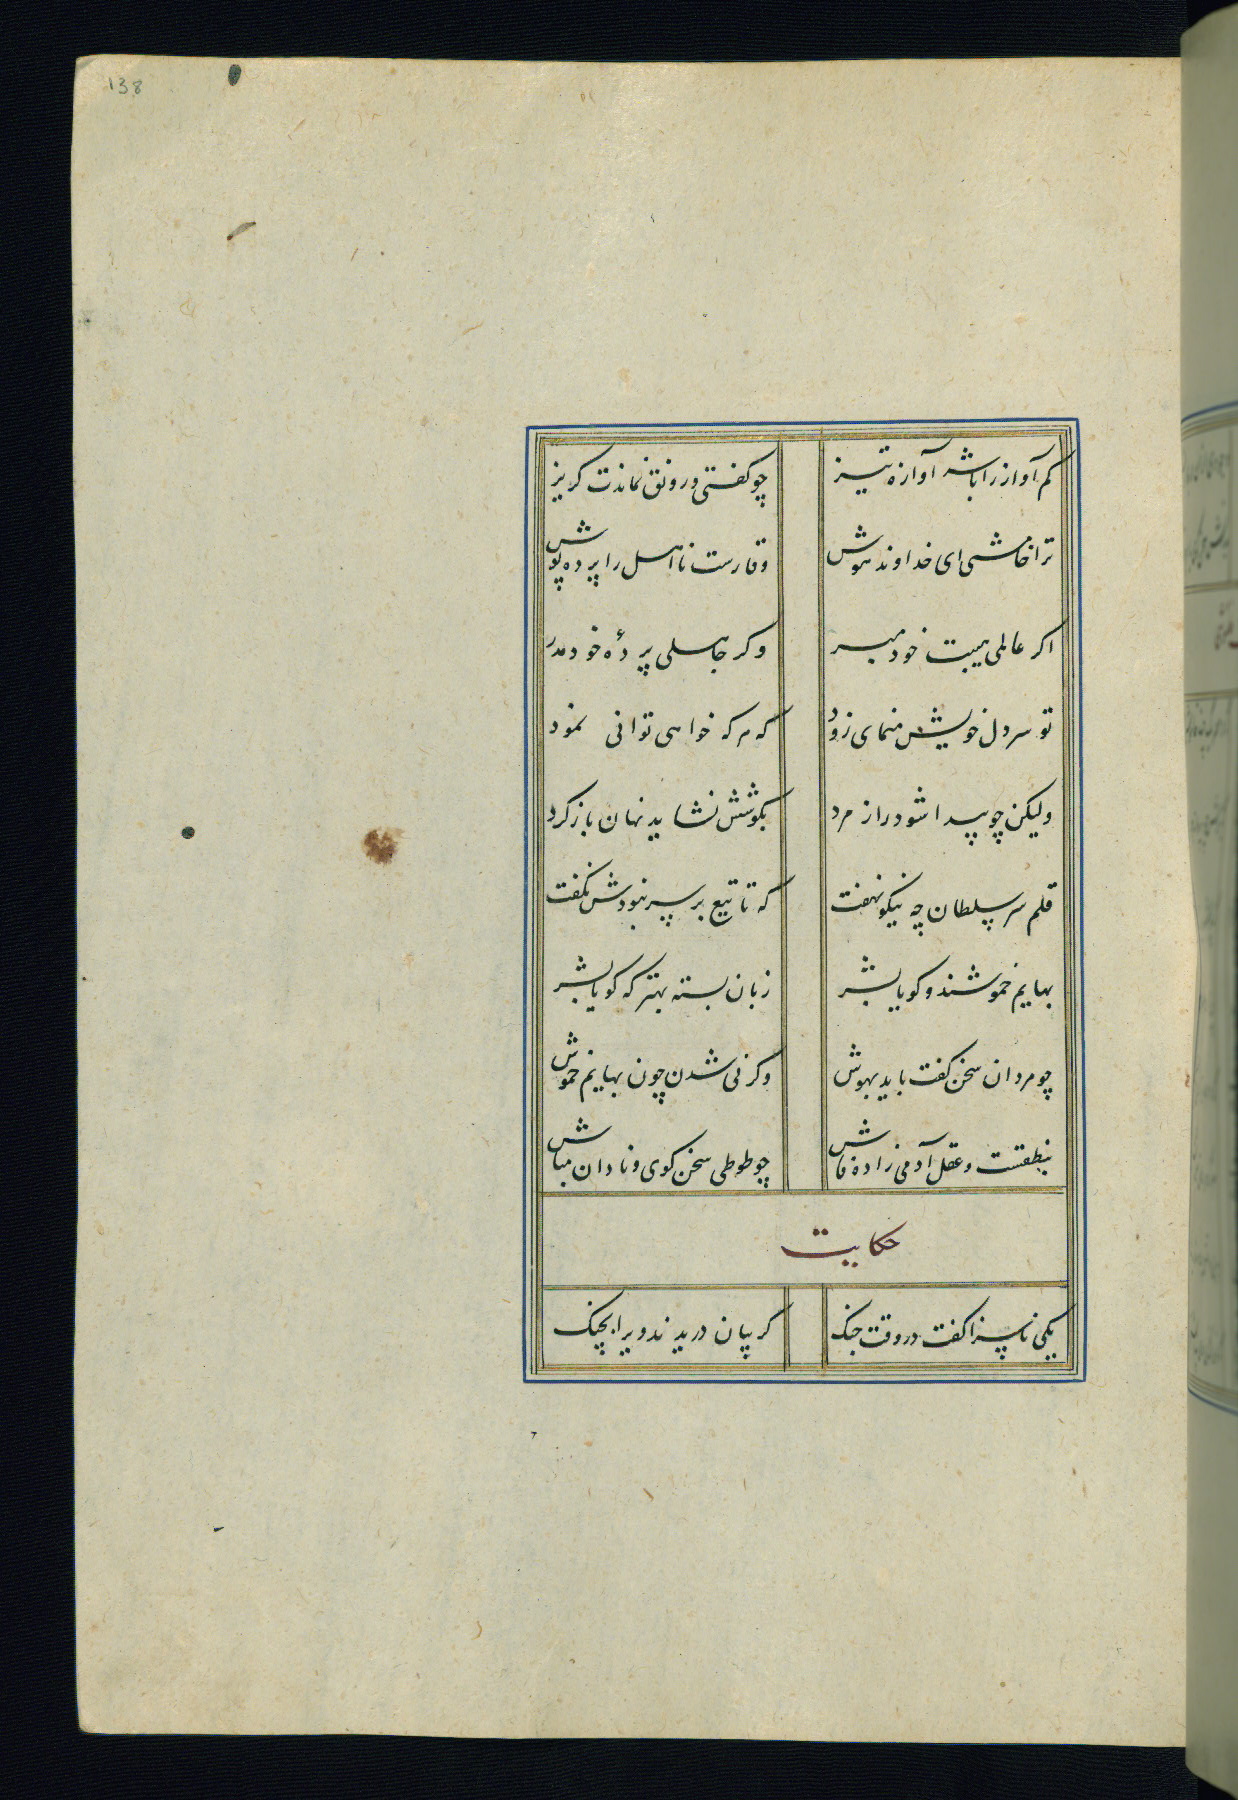 138
کم آواز را باشد آوازه تیز چو کفتی و رونق نماندت کریز
ترا خامشی ای خداوند هوش وقارست نااهل را پرده پوش
اکر عالمی هیبت خود مبر وکر جاهلی پردهٔ خود مدر
تو سر دل خویش منمای زود که هرکه خواهی توانی نمود
ولیکن چو پیدا شود راز مرد بکوشش نشاید نهان بازکرد
قلم سر سلطان چه نیکو نهفت که تا تیغ بر سر نبودش نکفت
بهایم خموشند و کویا بشر زبان بسته بهتر که کویا بشر
چو مردان سخن کفت باید بهوش وکرنی شدن چون بهایم خموش
بنطقست و عقل آدمی زاده فاش چو طوطی سخن کوی و نادان مباش
حکایت
یکی ناسزا کفت در وقت جنک کریبان دریدند ویرا بچنک